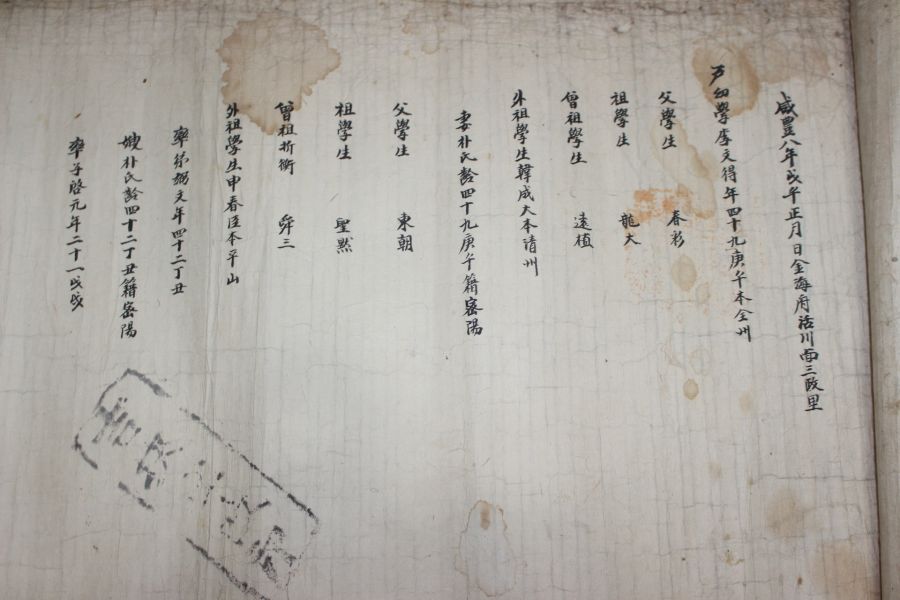 咸豐八年戊午正月日金海府活川面三政里
戶幼學李文得年四十九庚午本全州
父學生 春彩
祖學生 龍大
曾祖學生 遠植
外祖學生韓成大本清州
妻朴氏齡四十九庚午籍密陽
父學生 東朝
祖學生 聖黙
曾祖折衝 舜三
外祖學生申春臣本平山
率弟弼文年四十二丁丑
嫂朴氏齡四十二丁丑籍密陽
率子啓元年二十一戊戌